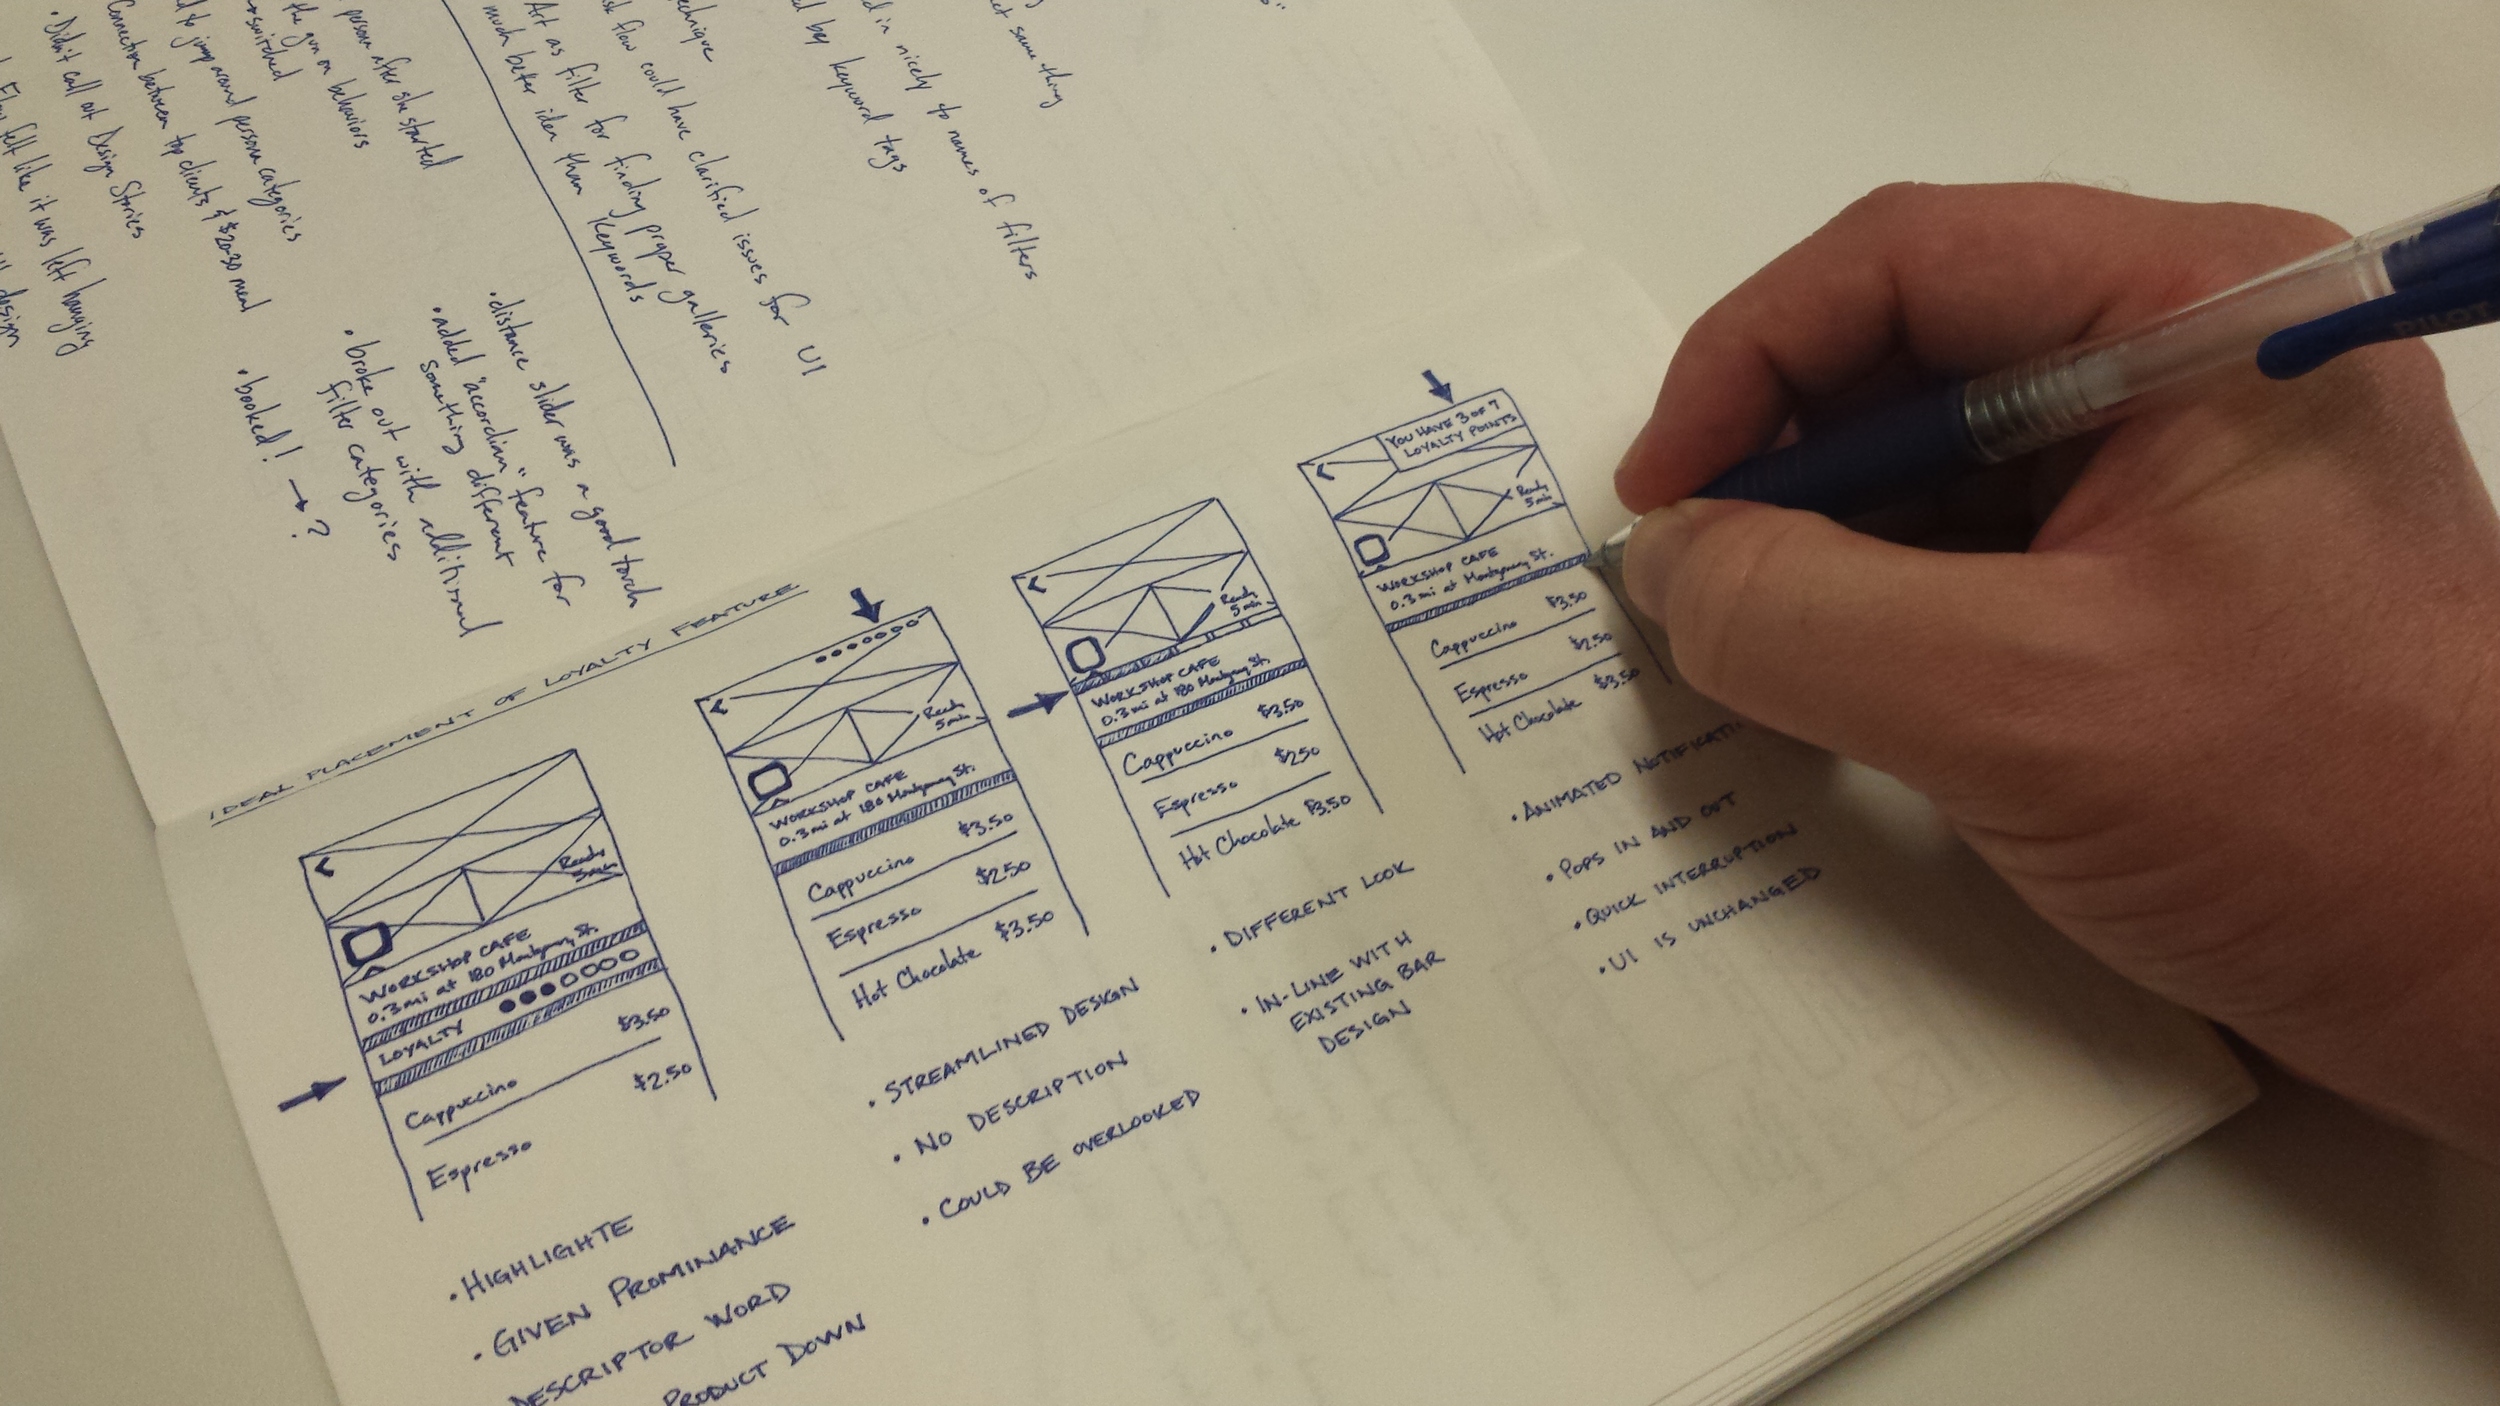 ct something
d in nicely to names of filters
d by keyword tags
echnique
sk flow could have clarified issues for UI
Art as filter for finding proper galleries
much better idea than keywords
person after she started
the gun on behaviors
switched
d to jump around persona categories
Connection between top clients & $20-30 meal
• Didn't call out Design Stories
Flow felt like it was left hanging
design
• distance slider was a good touch
• added "accordian" feature for
something different
• broke out with additional
filter categories
• booked! → ?
IDEAL PLACEMENT OF LOYALTY FEATURE
Ready
5 min
WORKSHOP CAFE
0.3 mi at 180 Montgomery St.
LOYALTY
Cappuccino $3.50
Espresso $2.50
• HIGHLIGHTE
• GIVEN PROMINANCE
DESCRIPTOR WORD
PRODUCT DOWN
Ready
5 min
WORKSHOP CAFE
0.3 mi at 180 Montgomery St.
Cappuccino $3.50
Espresso $2.50
Hot Chocolate $3.50
• STREAMLINED DESIGN
• NO DESCRIPTION
• COULD BE OVERLOOKED
Ready
5 min
WORKSHOP CAFE
0.3 mi at 180 Montgomery St.
Cappuccino $3.50
Espresso $2.50
Hot Chocolate $3.50
• DIFFERENT LOOK
• IN-LINE WITH
EXISTING BAR
DESIGN
YOU HAVE 3 OF 7
LOYALTY POINTS
Ready
5 min
WORKSHOP CAFE
0.3 mi at Montgomery St.
Cappuccino $3.50
Espresso $2.50
Hot Chocolate $3.50
• ANIMATED NOTIFICATI
• POPS IN AND OUT
• QUICK INTERRUPTION
• UI IS UNCHANGED
PILOT